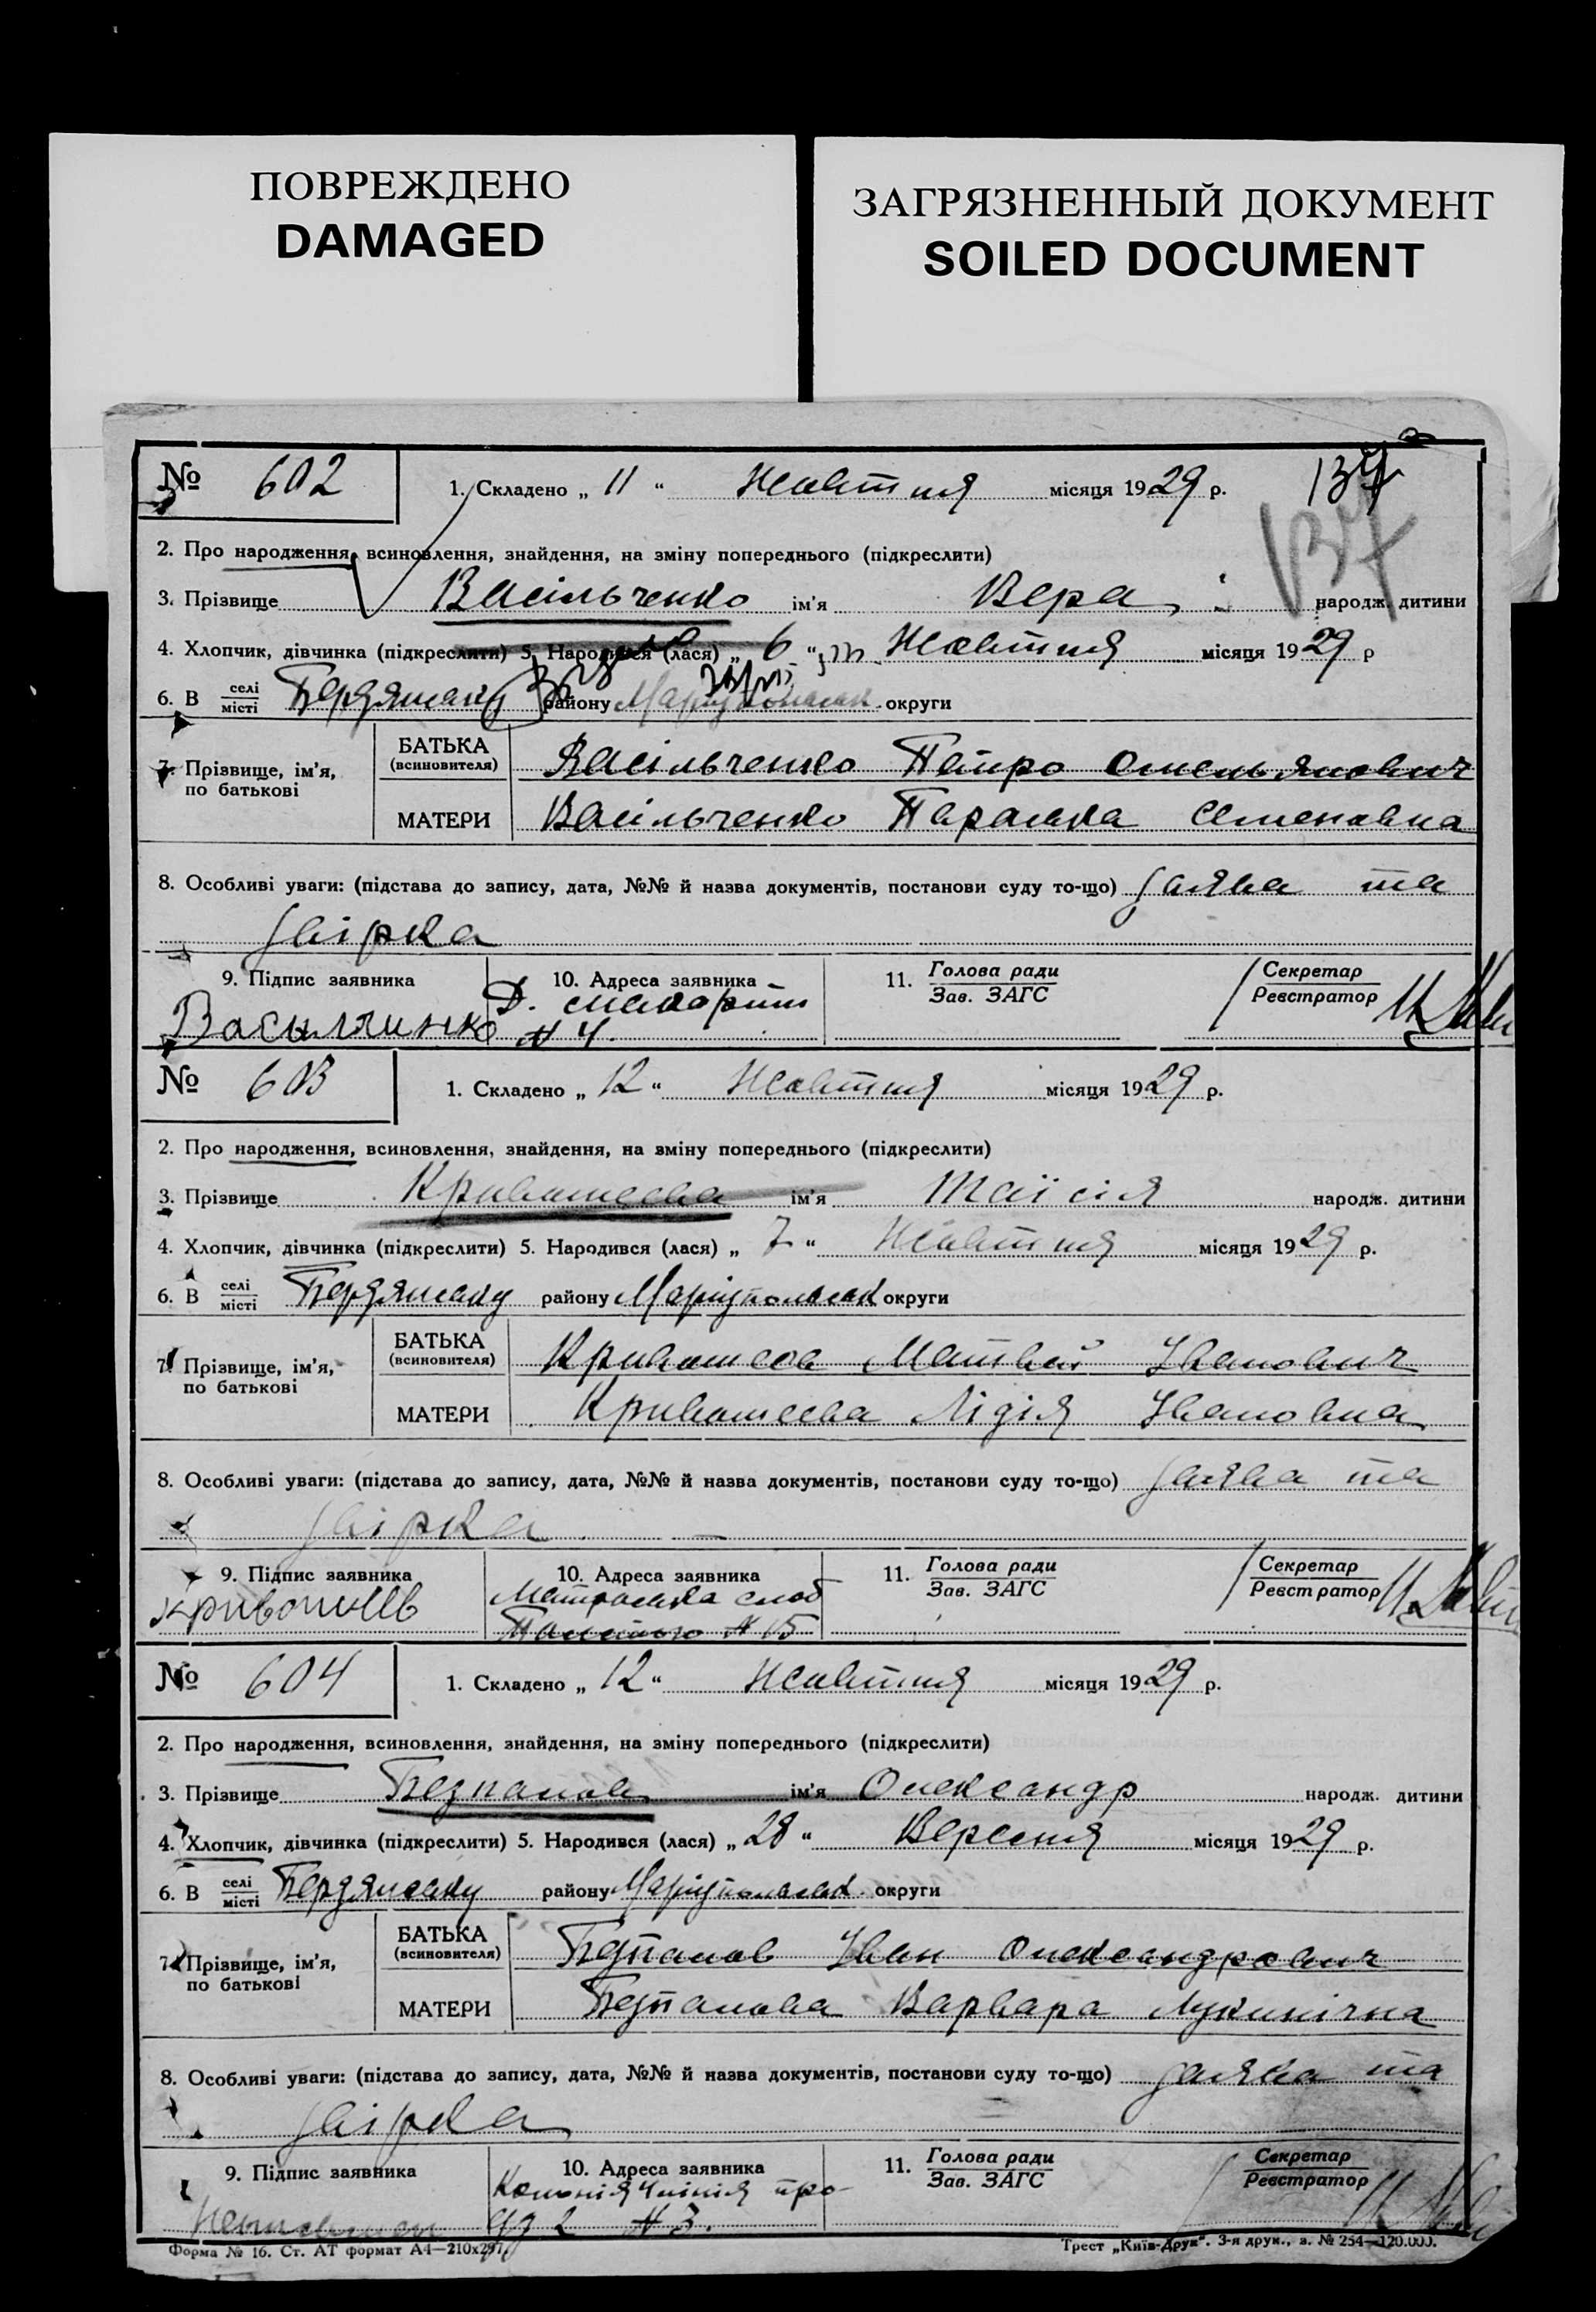 ПОВРЕЖДЕНО
DAMAGED
ЗАГРЯЗНЕННЫЙ ДОКУМЕНТ
SOILED DOCUMENT
№ 602 1. Складено „ 11 “ Жовтня місяця 1929 р. 137
137
2. Про народження, всиновлення, знайдення, на зміну попереднього (підкреслити)
3. Прізвище Васільченко ім'я Вера народж. дитини
4. Хлопчик, дівчинка (підкреслити) 5. Народився (лася) „ 6 “ Жовтня місяця 1929 р
6. В селі місті Бердянську району Маріупольськ. округи
7. Прізвище, ім'я, по батькові
БАТЬКА (всиновителя) Васільченко Петро Омельянович
МАТЕРИ Васільченко Параска Семеновна
8. Особливі уваги: (підстава до запису, дата, №№ й назва документів, постанови суду то-що) заява та
звірка
9. Підпис заявника 10. Адреса заявника 11. Голова ради Зав. ЗАГС Секретар Реєстратор
Василчинко № 4.
№ 603 1. Складено „ 12 “ Жовтня місяця 1929 р.
2. Про народження, всиновлення, знайдення, на зміну попереднього (підкреслити)
3. Прізвище Кривошеева ім'я Таїсія народж. дитини
4. Хлопчик, дівчинка (підкреслити) 5. Народився (лася) „ 7 “ Жовтня місяця 1929 р.
6. В селі місті Бердянську району Маріупольськ округи
7. Прізвище, ім'я, по батькові
БАТЬКА (всиновителя) Кривошеєв Матвей Іванович
МАТЕРИ Кривошеева Лідія Івановна
8. Особливі уваги: (підстава до запису, дата, №№ й назва документів, постанови суду то-що) заява та
звірка
9. Підпис заявника 10. Адреса заявника 11. Голова ради Зав. ЗАГС Секретар Реєстратор
Матроська слоб
Кривошеев № 15
№ 604 1. Складено „ 12 “ Жовтня місяця 1929 р.
2. Про народження, всиновлення, знайдення, на зміну попереднього (підкреслити)
3. Прізвище Безпалов ім'я Олександр народж. дитини
4. Хлопчик, дівчинка (підкреслити) 5. Народився (лася) „ 28 “ Вересня місяця 1929 р.
6. В селі місті Бердянську району Маріупольськ. округи
7. Прізвище, ім'я, по батькові
БАТЬКА (всиновителя) Безпалов Іван Олександрович
МАТЕРИ Безпалова Варвара Лукинічна
8. Особливі уваги: (підстава до запису, дата, №№ й назва документів, постанови суду то-що) заява та
звірка
9. Підпис заявника 10. Адреса заявника 11. Голова ради Зав. ЗАГС Секретар Реєстратор
Колонія
№ 3.
Форма № 16. Ст. АТ формат А4—210х297. Трест „Київ-Друк“. 3-я друк., з. № 254—120.000.